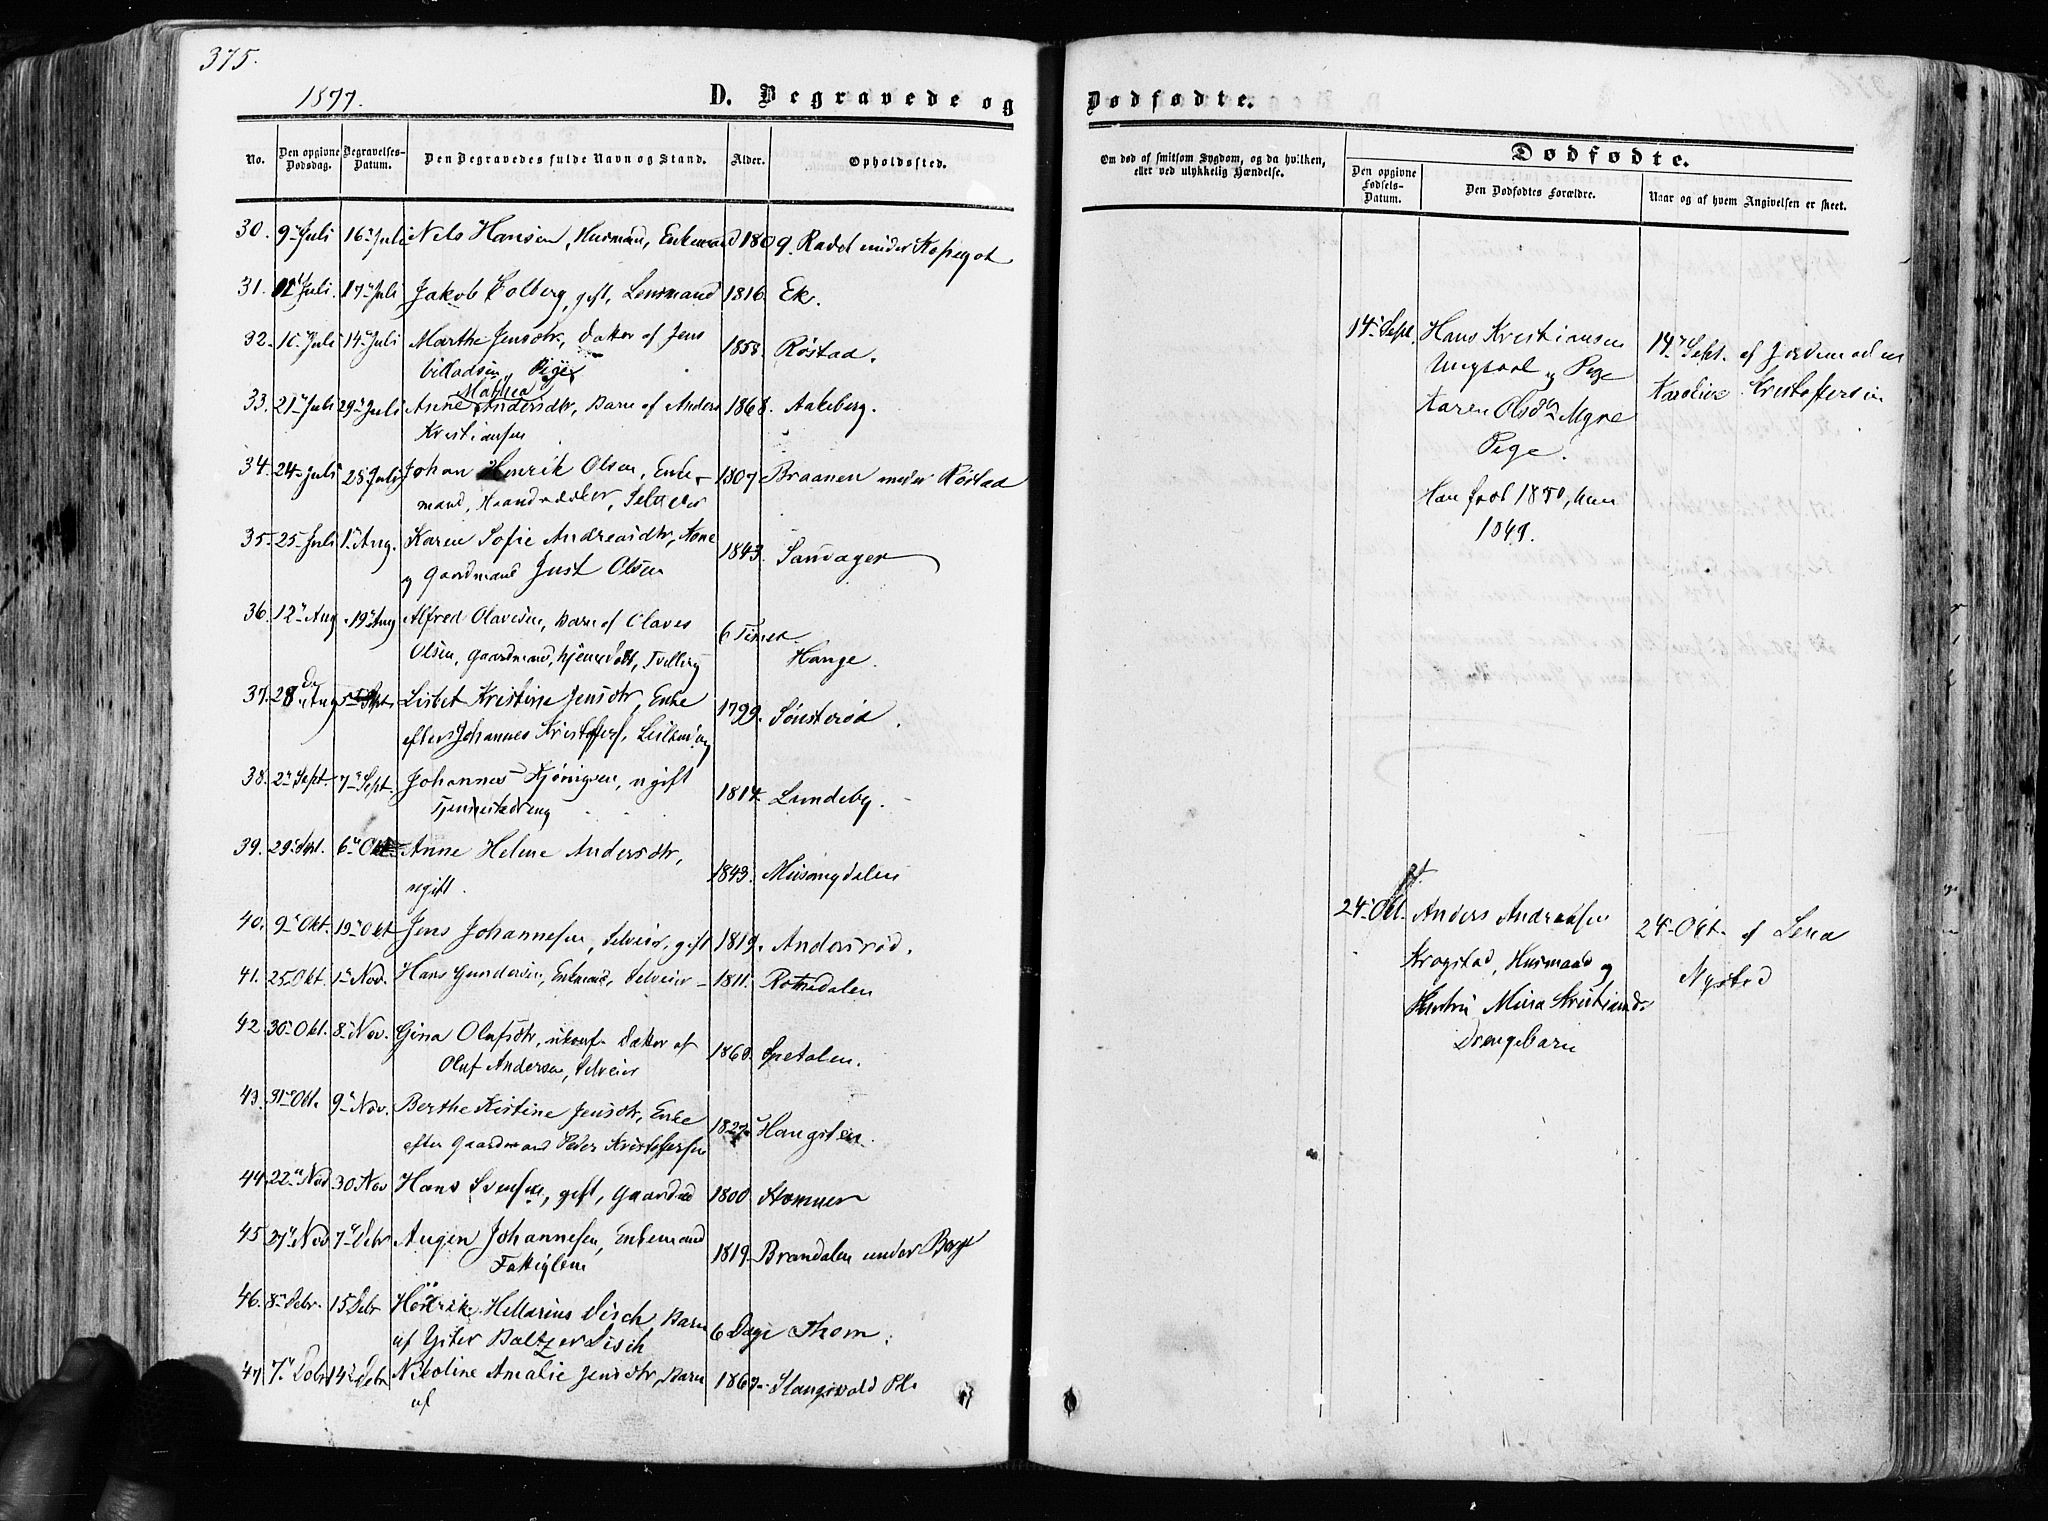 375.
1877.
D. Begravede og
No.
Den opgivne Dødsdag.
Begravelses-Datum.
Den Begravedes fulde Navn og Stand.
Alder.
Opholdssted.
30. 9 Juli 16 Juli Nels Hansen, Husmand, Enkemand 1809. Rødet under Kopegot
31. Juli. 17 Juli Jakob Solberg, gift, Lensmand 1816. Ek.
32. Juli 14 Juli Marthe Jensdtr, Datter af Jens
1858. Røstad.
Pige
Mathea
33. 21 Juli 29 Juli Anne Andersdtr, Barn af Anders 1868. Aakeberg.
Kristiansen
34. 24 Juli 28 Juli Johan Henrik Olsen, Enke-
mand, Selveier
1807. Braanen under Røstad
35. 25 Juli 1 Aug. Karen Sofie Andreasdtr, Kone
1843. Sandager
og Gaardmand Just Olsen
36. 12 Aug 19 Aug Alfred Olavesen, Barn af Olaves
6 Timer.
Olsen, Gaardmand, hjemdøbt, Tvilling
Hauge.
37. 28 Aug 5 Sept. Lisbet Kristine Jensdtr, Enke
1799. Sønsterød.
efter Johannes Kristoffers.
38. 2 Sept. 7 Sept. Johannes ugift
1817. Lundeby.
39. 29 Sept. 6 Okt. Anne Helene Andersdtr,
ugift.
1843.
40. 9 Okt. 19 Okt Jens Johannesen, Selveier, gift 1819. Andersrød.
41. 25 Okt. 1 Nov. Hans Gundersen, Enkemand, Selveier 1811. Romsdalen
42. 30 Okt. 8 Nov. Gina Olufsdtr, ukonf. Datter af
1863. Spetalen.
Oluf Andersen, Selveier
43. 31 Okt. 9 Nov. Berthe Kristine Jensdtr, Enke
efter Gaardmand Peder Kristoffersen
1827. Haugsten.
44. 22 Nov 30 Nov Hans Svensen, gift, Gaardmd 1800.
45. 27 Nov 7 Debr Augen Johannesen, Enkemand
1819. Brandalen under Berge
Fattiglem
46. 8 Debr. 15 Debr Henrik Hillarius Disch, Barn
af Baltzer Disch
6 Dage Thom.
47. 7 Debr 14 Debr Nikoline Amalie Jensdtr, Barn 1867.
af
Dødfødte.
Om død af smitsom Sygdom, og da hvilken, eller ved ulykkelig Hændelse.
Dødfødte.
Den opgivne Fødsels-Datum.
Den Dødfødtes Forældre.
Naar og af hvem Angivelsen er skeet.
14 Sept. Hans Kristiansen
Ungkarl og Pige
Karen Olsdtr Myre
Pige.
Han født 1850, hun
1849.
14 Sept. af Jordemoderen
Karoline Kristoffersen
24 Okt. Anders Andreasen
Krogstad, Husmand og
Hustru Mina Kristiansd.
Drengebarn
24 Okt. af Lena
Nystad